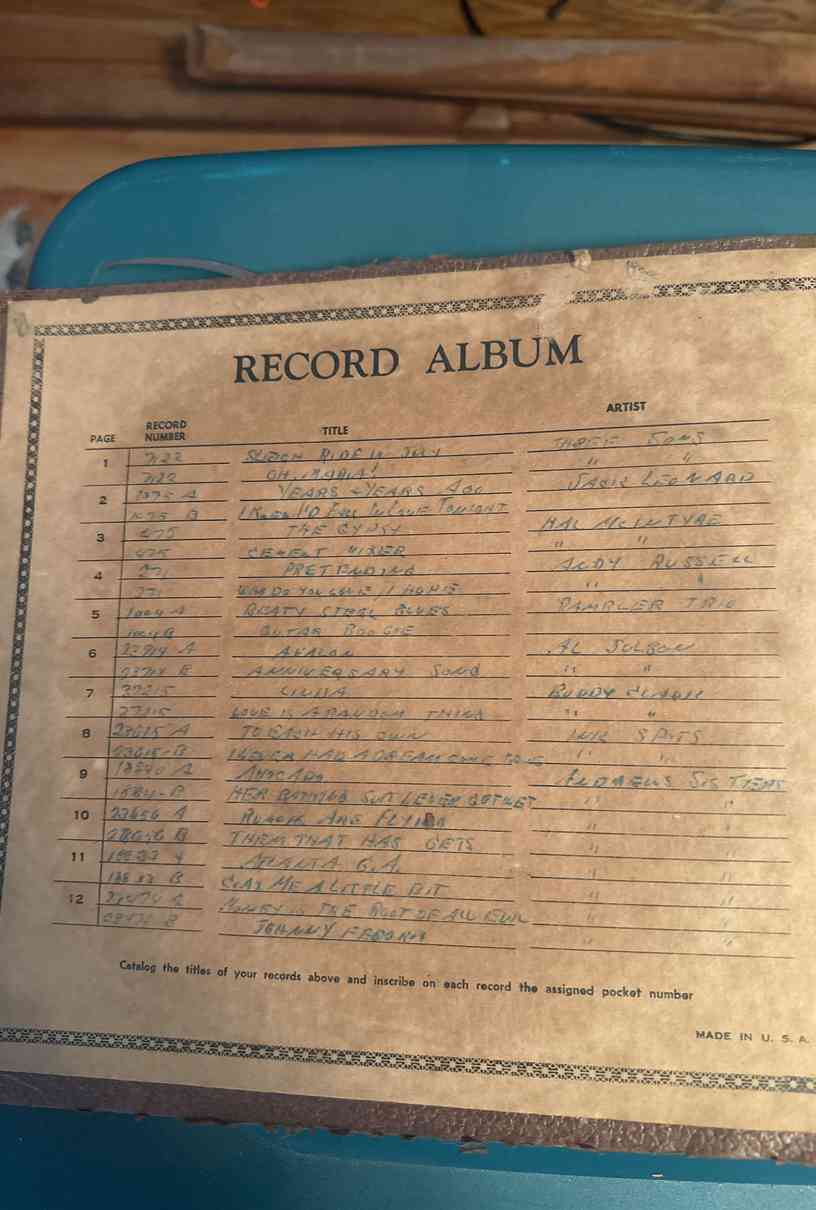 RECORD ALBUM
PAGE RECORD NUMBER TITLE ARTIST
1 7122 RIDE IN JULY THREE SONS
7122 OH, MARIA! " "
2 1075 A YEARS & YEARS AGO JACK LEONARD
B I'D FALL IN LOVE TONIGHT
3 475 THE GYPSY HAL McINTYRE
475 CEMENT MIXER " "
4 271 PRETENDING ANDY RUSSELL
271 WHO DO YOU LOVE I HOPE " "
5 1004 A BEATY STEEL BLUES RAMBLER TRIO
1004 B GUITAR BOOGIE
6 23714 A AVALON AL JOLSON
23714 B ANNIVERSARY SONG " "
7 37215 LINDA BUDDY CLARK
37215 LOVE IS A RANDOM THING " "
8 23615 A TO EACH HIS OWN INK SPOTS
23615-B I NEVER HAD A DREAM COME TRUE " "
9 18840 A AVOCADO ANDREWS SISTERS
18840-B HER BATHING SUIT NEVER GOT WET " "
10 23656 A RUMORS ARE FLYING " "
23656 B THEM THAT HAS GETS " "
11 18833 A ATLANTA G.A. " "
18833 B A LITTLE BIT " "
12 23474 A MONEY IS THE ROOT OF ALL EVIL " "
23474 B JOHNNY FEDORA " "
Catalog the titles of your records above and inscribe on each record the assigned pocket number
MADE IN U. S. A.